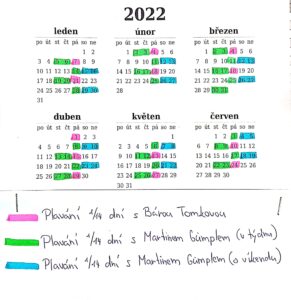 2022
leden únor březen
po út st čt pá so ne po út st čt pá so ne po út st čt pá so ne
1 2 1 2 3 4 5 6 1 2 3 4 5 6
3 4 5 6 7 8 9 7 8 9 10 11 12 13 7 8 9 10 11 12 13
10 11 12 13 14 15 16 14 15 16 17 18 19 20 14 15 16 17 18 19 20
17 18 19 20 21 22 23 21 22 23 24 25 26 27 21 22 23 24 25 26 27
24 25 26 27 28 29 30 28 28 29 30 31
31
duben květen červen
po út st čt pá so ne po út st čt pá so ne po út st čt pá so ne
1 2 3 1 1 2 3 4 5
4 5 6 7 8 9 10 2 3 4 5 6 7 8 6 7 8 9 10 11 12
11 12 13 14 15 16 17 9 10 11 12 13 14 15 13 14 15 16 17 18 19
18 19 20 21 22 23 24 16 17 18 19 20 21 22 20 21 22 23 24 25 26
25 26 27 28 29 30 23 24 25 26 27 28 29 27 28 29 30
30 31
Plavání 1/14 dní s Bárou Tomkovou
Plavání 1/14 dní s Martinem Gümplem (v týdnu)
Plavání 1/14 dní s Martinem Gümplem (o víkendu)